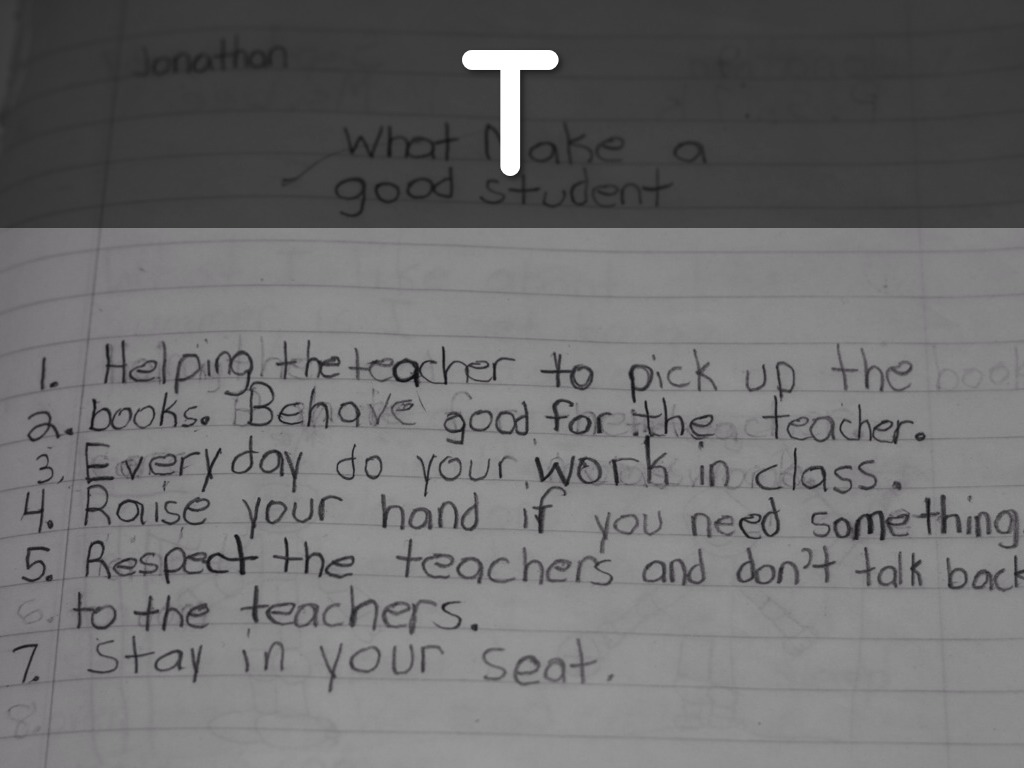 T
Jonathan
What Make a
good student
1. Helping the teacher to pick up the
2. books. Behave good for the teacher.
3. Every day do your work in class.
4. Raise your hand if you need something
5. Respect the teachers and don't talk back
6. to the teachers.
7. Stay in your seat.
8.